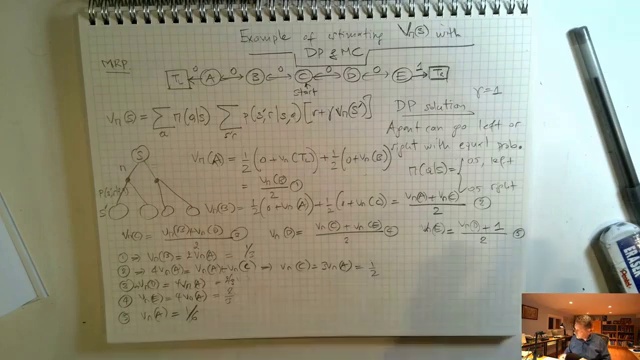 Example of estimating Vπ(s) with
DP & MC
MRP
T A B C D E T
0 0 0 0 0 1
start
Vπ(s) = Σ π(a|s) Σ p(s',r|s,a) [r+γVπ(s')]
a s',r
DP solution γ=1
Agent can go left or
right with equal prob.
π(a|s) = { 0.5, left
0.5 right
S
π
s'
Vπ(A) = 1/2 (0+Vπ(TL)) + 1/2 (0+Vπ(B))
= Vπ(B)/2 ①
Vπ(B) = 1/2 (0+Vπ(A)) + 1/2 (0+Vπ(C)) = (Vπ(A)+Vπ(C))/2 ②
Vπ(C) = (Vπ(B)+Vπ(D))/2 ③ Vπ(D) = (Vπ(C)+Vπ(E))/2 ④ Vπ(E) = (Vπ(D)+1)/2 ⑤
① ⇒ Vπ(B) = 2Vπ(A) = 1/3
② ⇒ 4Vπ(A) = Vπ(A)+Vπ(C) ⇒ Vπ(C) = 3Vπ(A) = 1/2
③ Vπ(D) = 4Vπ(A)
④
⑤ Vπ(A) = 1/6
ERASER